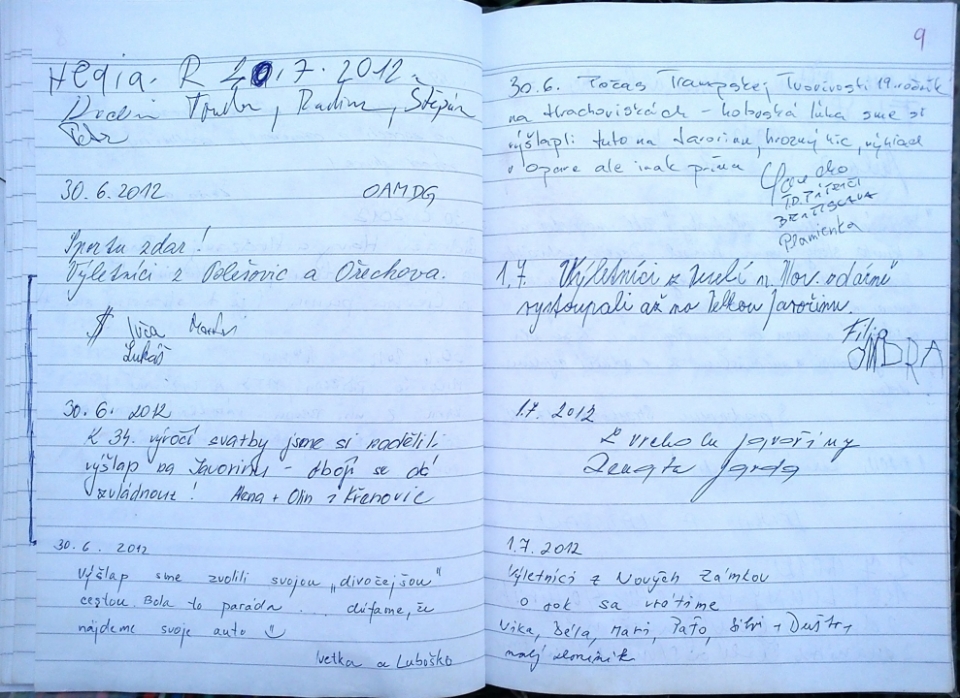 Hegia. R 20.7.2012
Radim, Štěpán
Petr
30.6.2012 OAMDG
Sportu zdar!
Výletníci z Polešovic a Ořechova.
Jiřa
Lukáš
30.6. 2012
K 34. výročí svatby jsme si nadělili
výšlap na Javorinu - obojí se dá
zvládnout! Alena + Olin z Křenovic
30.6. 2012
Výšlap sme zvolili svojou "divočejšou"
cestou. Bola to paráda... dúfame, že
nájdeme svoje auto
Ivetka a Luboško
9
30.6. Počas Trampskej Tvorivosti 19. ročník
na Hrachoviskách - hoboská lúka sme si
výšlapli tuto na Javorinu, hrozný hic, výhlad
v opare ale inak príma
T.O. PÁTRAČI
BRATISLAVA
Plamienka
1.7. Výletníci z Veselí n. Mor. "
vystoupali až na Velkou Javořinu.
Filip
OMBRA
1.7. 2012
Z vrcholu Javořiny
Renata Jarda
1.7.2012
Výletníci z Nových Zámkov
o rok sa vrátime
Vika, Béla, Mari, Paťo, Silvi +
malý slonimik